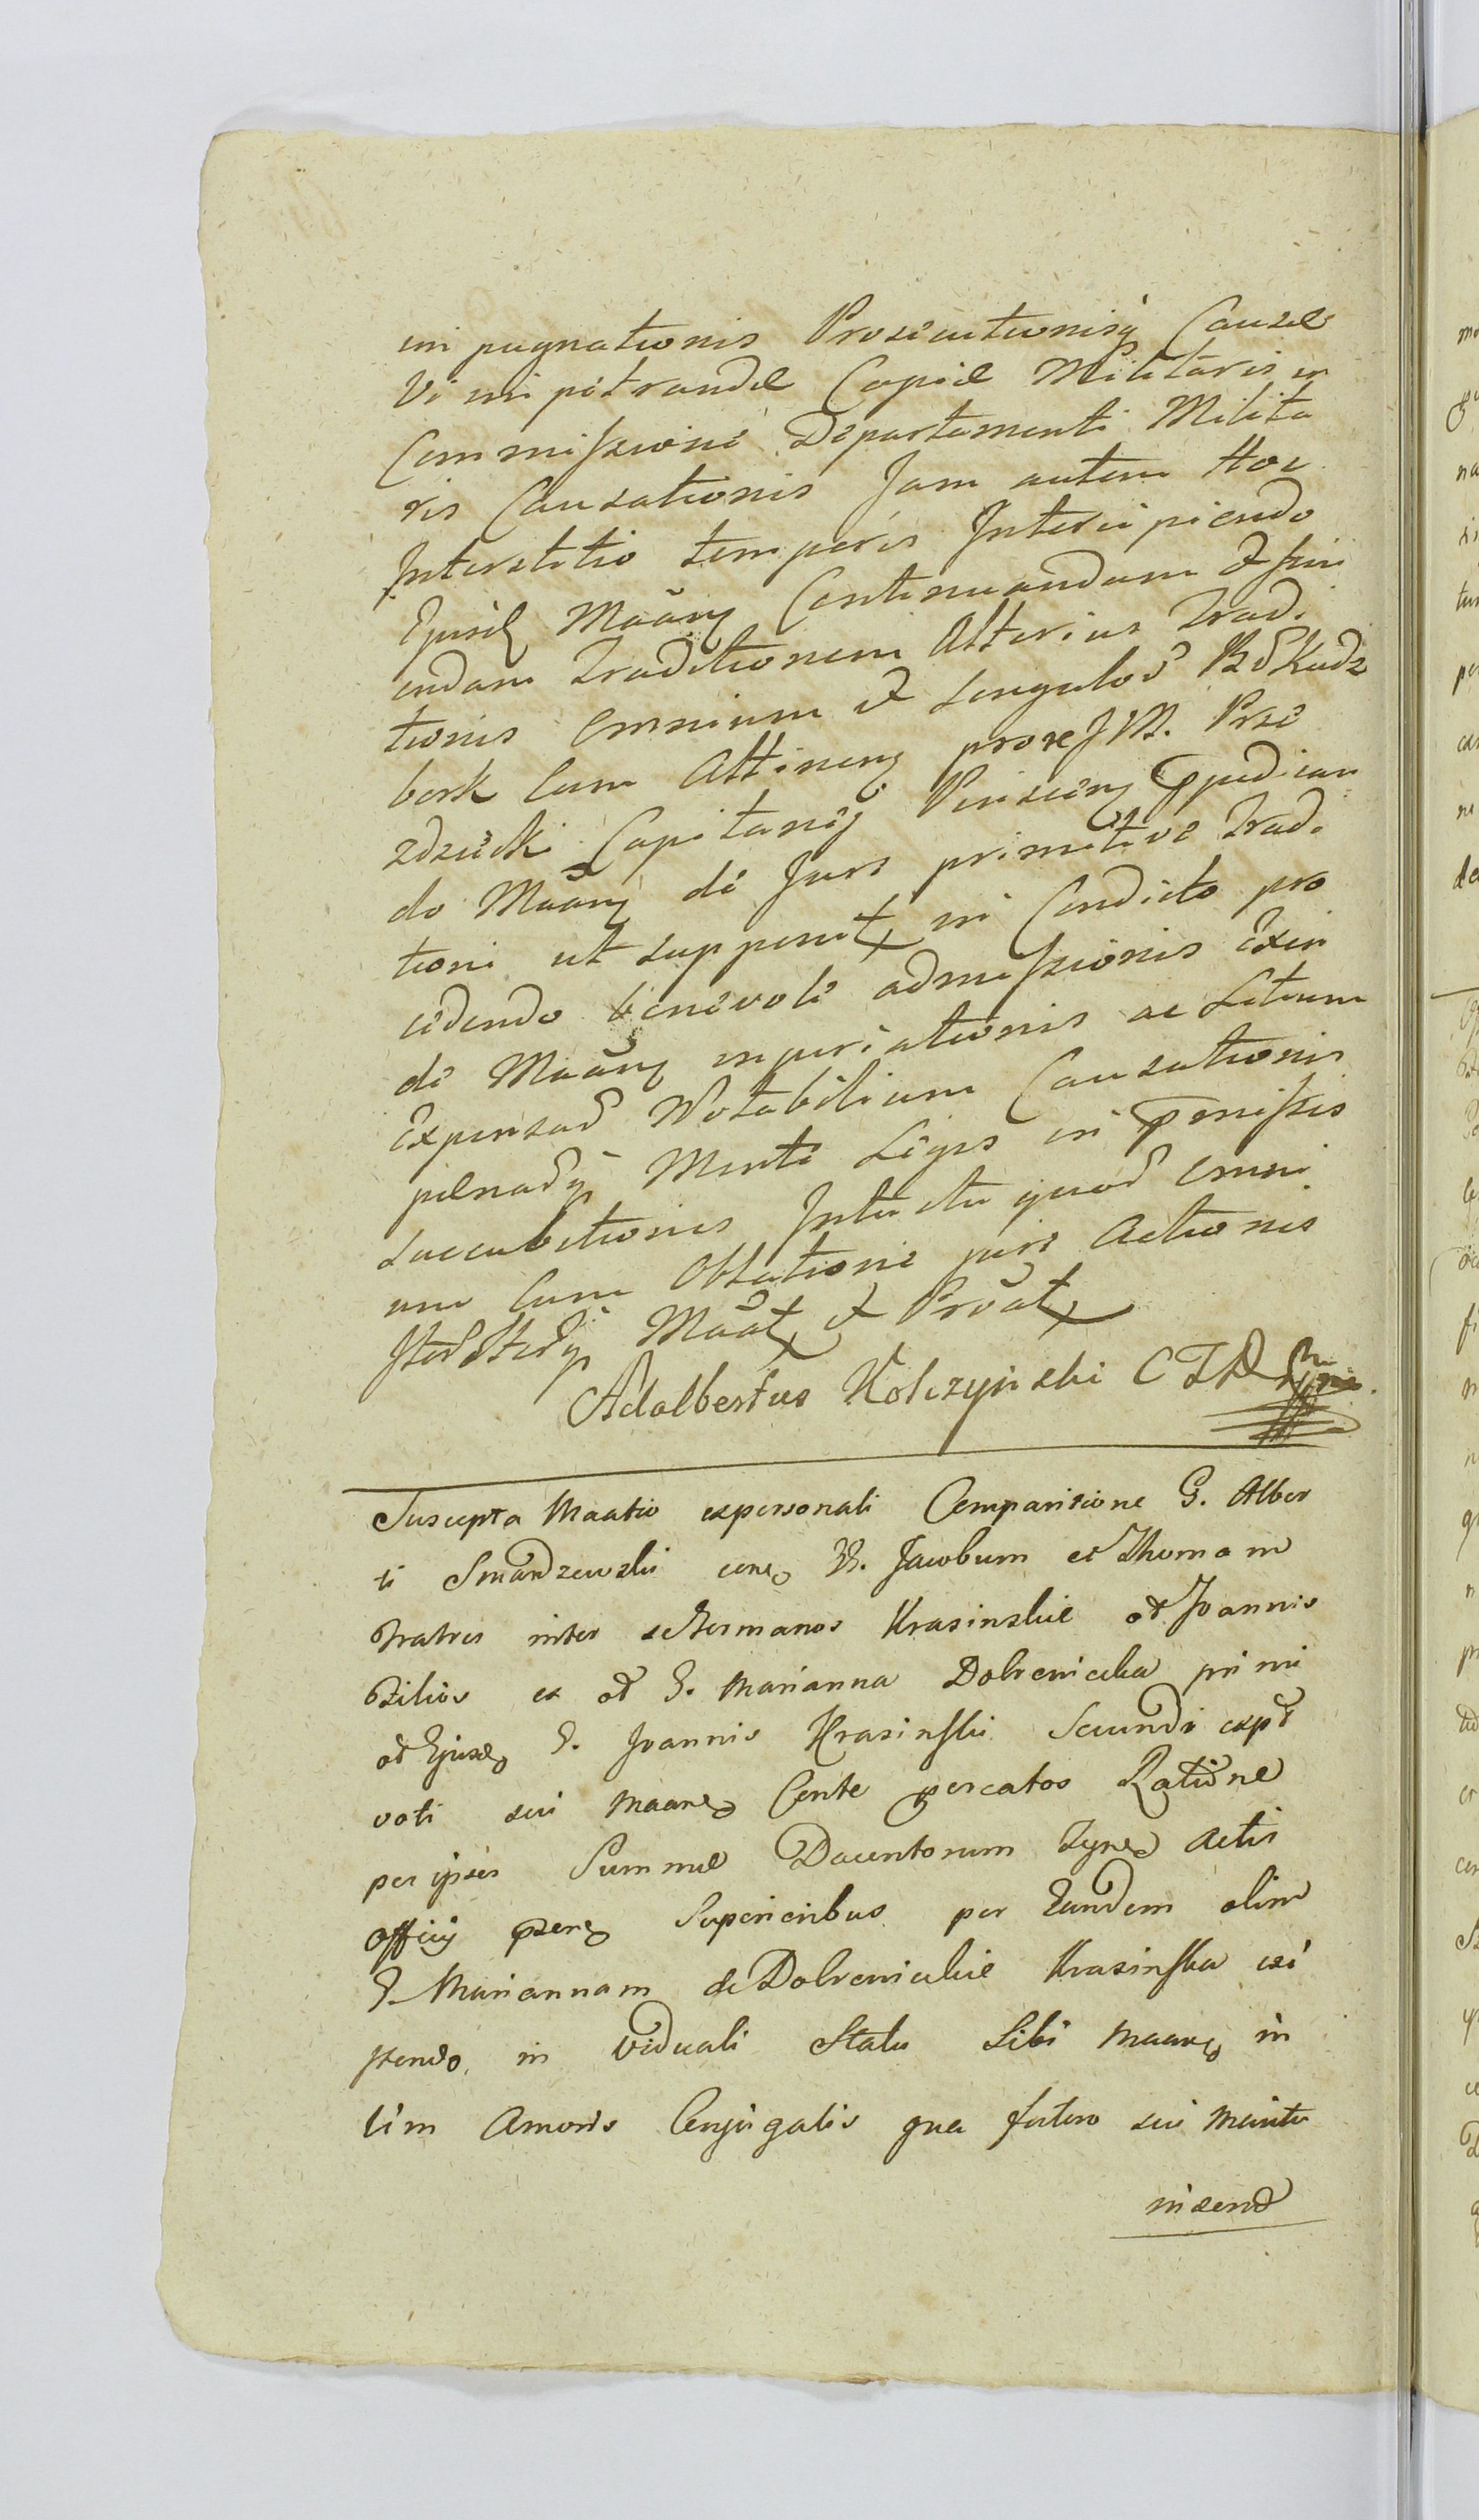 impugnationis Prosecutionisq Causæ
Vi impetrandæ Copiæ Militaris in
Commissione Departamenti Milita
ris Causationis Jam autem Hoc
Interstitio temporis Intercipiendo
Ejusd Maãnq Continuandam et fini
endam Traditionem Alterius Tradi
tionis Omnium et Singulor Bd Kudz
bork Cum Attinenq pro re J M. Prze
zdziecki Capitanei
do Maãnq de Jure primitive Tradi
tioni ut support in Condicto pro
cedendo benevole admissionis Exin
de Maãnq injuriationis ac Litium
Expensar Notabilium Causationis
pænarq Mente Legis in præmissis
Succubitionis Intuitu quod omni
um Cum Oblatione juris Actionis
Maãt et Prõat
Adalbertus Kolczynski C T
Suscepta Maatio expersonali Comparitione G. Alber
ti Smardzewski conq N. Jacobum et Thomam
Fratres inter se Germanos Krasinskie et Joannis
Filios ex et G. Marianna Dobreniecka primi
et Ejusd G. Joannis Krasinski Secundi expt
voti sui Maanq Conte percatos Ratione
per ipsos Summæ Ducentorum Tynf Actis
Officij præsenq Superioribus per Eandem olim
G. Mariannam de Dobrenieckie Krasinska exi
stendo in viduali Statu Sibi Maanq in
vim Amoris Conjugalis qua futuro sui Marito
inservi